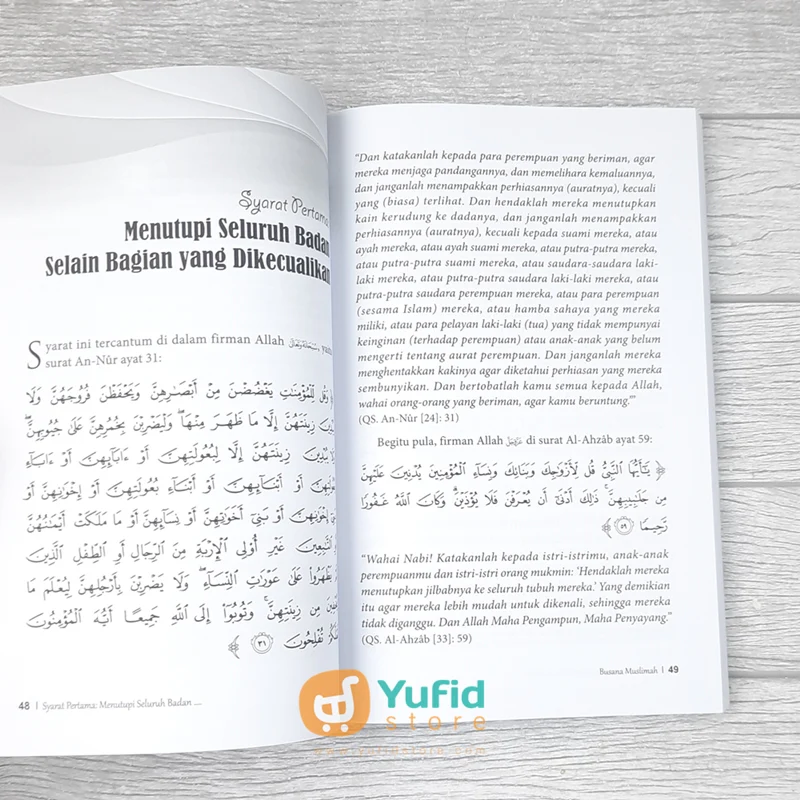 Syarat Pertama
Menutupi Seluruh Badan
Selain Bagian yang Dikecualikan
Syarat ini tercantum di dalam firman Allah سُبْحَانَهُ وَتَعَالَى
surat An-Nûr ayat 31:
وَقُل لِّلْمُؤْمِنَٰتِ يَغْضُضْنَ مِنْ أَبْصَٰرِهِنَّ وَيَحْفَظْنَ فُرُوجَهُنَّ وَلَا
يُبْدِينَ زِينَتَهُنَّ إِلَّا مَا ظَهَرَ مِنْهَا ۖ وَلْيَضْرِبْنَ بِخُمُرِهِنَّ عَلَىٰ جُيُوبِهِنَّ ۖ
وَلَا يُبْدِينَ زِينَتَهُنَّ إِلَّا لِبُعُولَتِهِنَّ أَوْ ءَابَآئِهِنَّ أَوْ ءَابَآءِ
بُعُولَتِهِنَّ أَوْ أَبْنَآئِهِنَّ أَوْ أَبْنَآءِ بُعُولَتِهِنَّ أَوْ إِخْوَٰنِهِنَّ أَوْ
بَنِىٓ إِخْوَٰنِهِنَّ أَوْ بَنِىٓ أَخَوَٰتِهِنَّ أَوْ نِسَآئِهِنَّ أَوْ مَا مَلَكَتْ أَيْمَٰنُهُنَّ
أَوِ ٱلتَّٰبِعِينَ غَيْرِ أُو۟لِى ٱلْإِرْبَةِ مِنَ ٱلرِّجَالِ أَوِ ٱلطِّفْلِ ٱلَّذِينَ
لَمْ يَظْهَرُوا۟ عَلَىٰ عَوْرَٰتِ ٱلنِّسَآءِ ۖ وَلَا يَضْرِبْنَ بِأَرْجُلِهِنَّ لِيُعْلَمَ مَا
يُخْفِينَ مِن زِينَتِهِنَّ ۚ وَتُوبُوٓا۟ إِلَى ٱللَّهِ جَمِيعًا أَيُّهَ ٱلْمُؤْمِنُونَ
لَعَلَّكُمْ تُفْلِحُونَ ٣١
48 | Syarat Pertama: Menutupi Seluruh Badan ....
"Dan katakanlah kepada para perempuan yang beriman, agar
mereka menjaga pandangannya, dan memelihara kemaluannya,
dan janganlah menampakkan perhiasannya (auratnya), kecuali
yang (biasa) terlihat. Dan hendaklah mereka menutupkan
kain kerudung ke dadanya, dan janganlah menampakkan
perhiasannya (auratnya), kecuali kepada suami mereka, atau
ayah mereka, atau ayah suami mereka, atau putra-putra mereka,
atau putra-putra suami mereka, atau saudara-saudara laki-
laki mereka, atau putra-putra saudara laki-laki mereka, atau
putra-putra saudara perempuan mereka, atau para perempuan
(sesama Islam) mereka, atau hamba sahaya yang mereka
miliki, atau para pelayan laki-laki (tua) yang tidak mempunyai
keinginan (terhadap perempuan) atau anak-anak yang belum
mengerti tentang aurat perempuan. Dan janganlah mereka
menghentakkan kakinya agar diketahui perhiasan yang mereka
sembunyikan. Dan bertobatlah kamu semua kepada Allah,
wahai orang-orang yang beriman, agar kamu beruntung.'"
(QS. An-Nûr [24]: 31)
Begitu pula, firman Allah عَزَّوَجَلَّ di surat Al-Ahzâb ayat 59:
يَٰٓأَيُّهَا ٱلنَّبِىُّ قُل لِّأَزْوَٰجِكَ وَبَنَاتِكَ وَنِسَآءِ ٱلْمُؤْمِنِينَ يُدْنِينَ عَلَيْهِنَّ
مِن جَلَٰبِيبِهِنَّ ۚ ذَٰلِكَ أَدْنَىٰٓ أَن يُعْرَفْنَ فَلَا يُؤْذَيْنَ ۗ وَكَانَ ٱللَّهُ غَفُورًا
رَّحِيمًا ٥٩
"Wahai Nabi! Katakanlah kepada istri-istrimu, anak-anak
perempuanmu dan istri-istri orang mukmin: 'Hendaklah mereka
menutupkan jilbabnya ke seluruh tubuh mereka.' Yang demikian
itu agar mereka lebih mudah untuk dikenali, sehingga mereka
tidak diganggu. Dan Allah Maha Pengampun, Maha Penyayang."
(QS. Al-Ahzâb [33]: 59)
Busana Muslimah | 49
Yufid
store
www.yufidstore.com